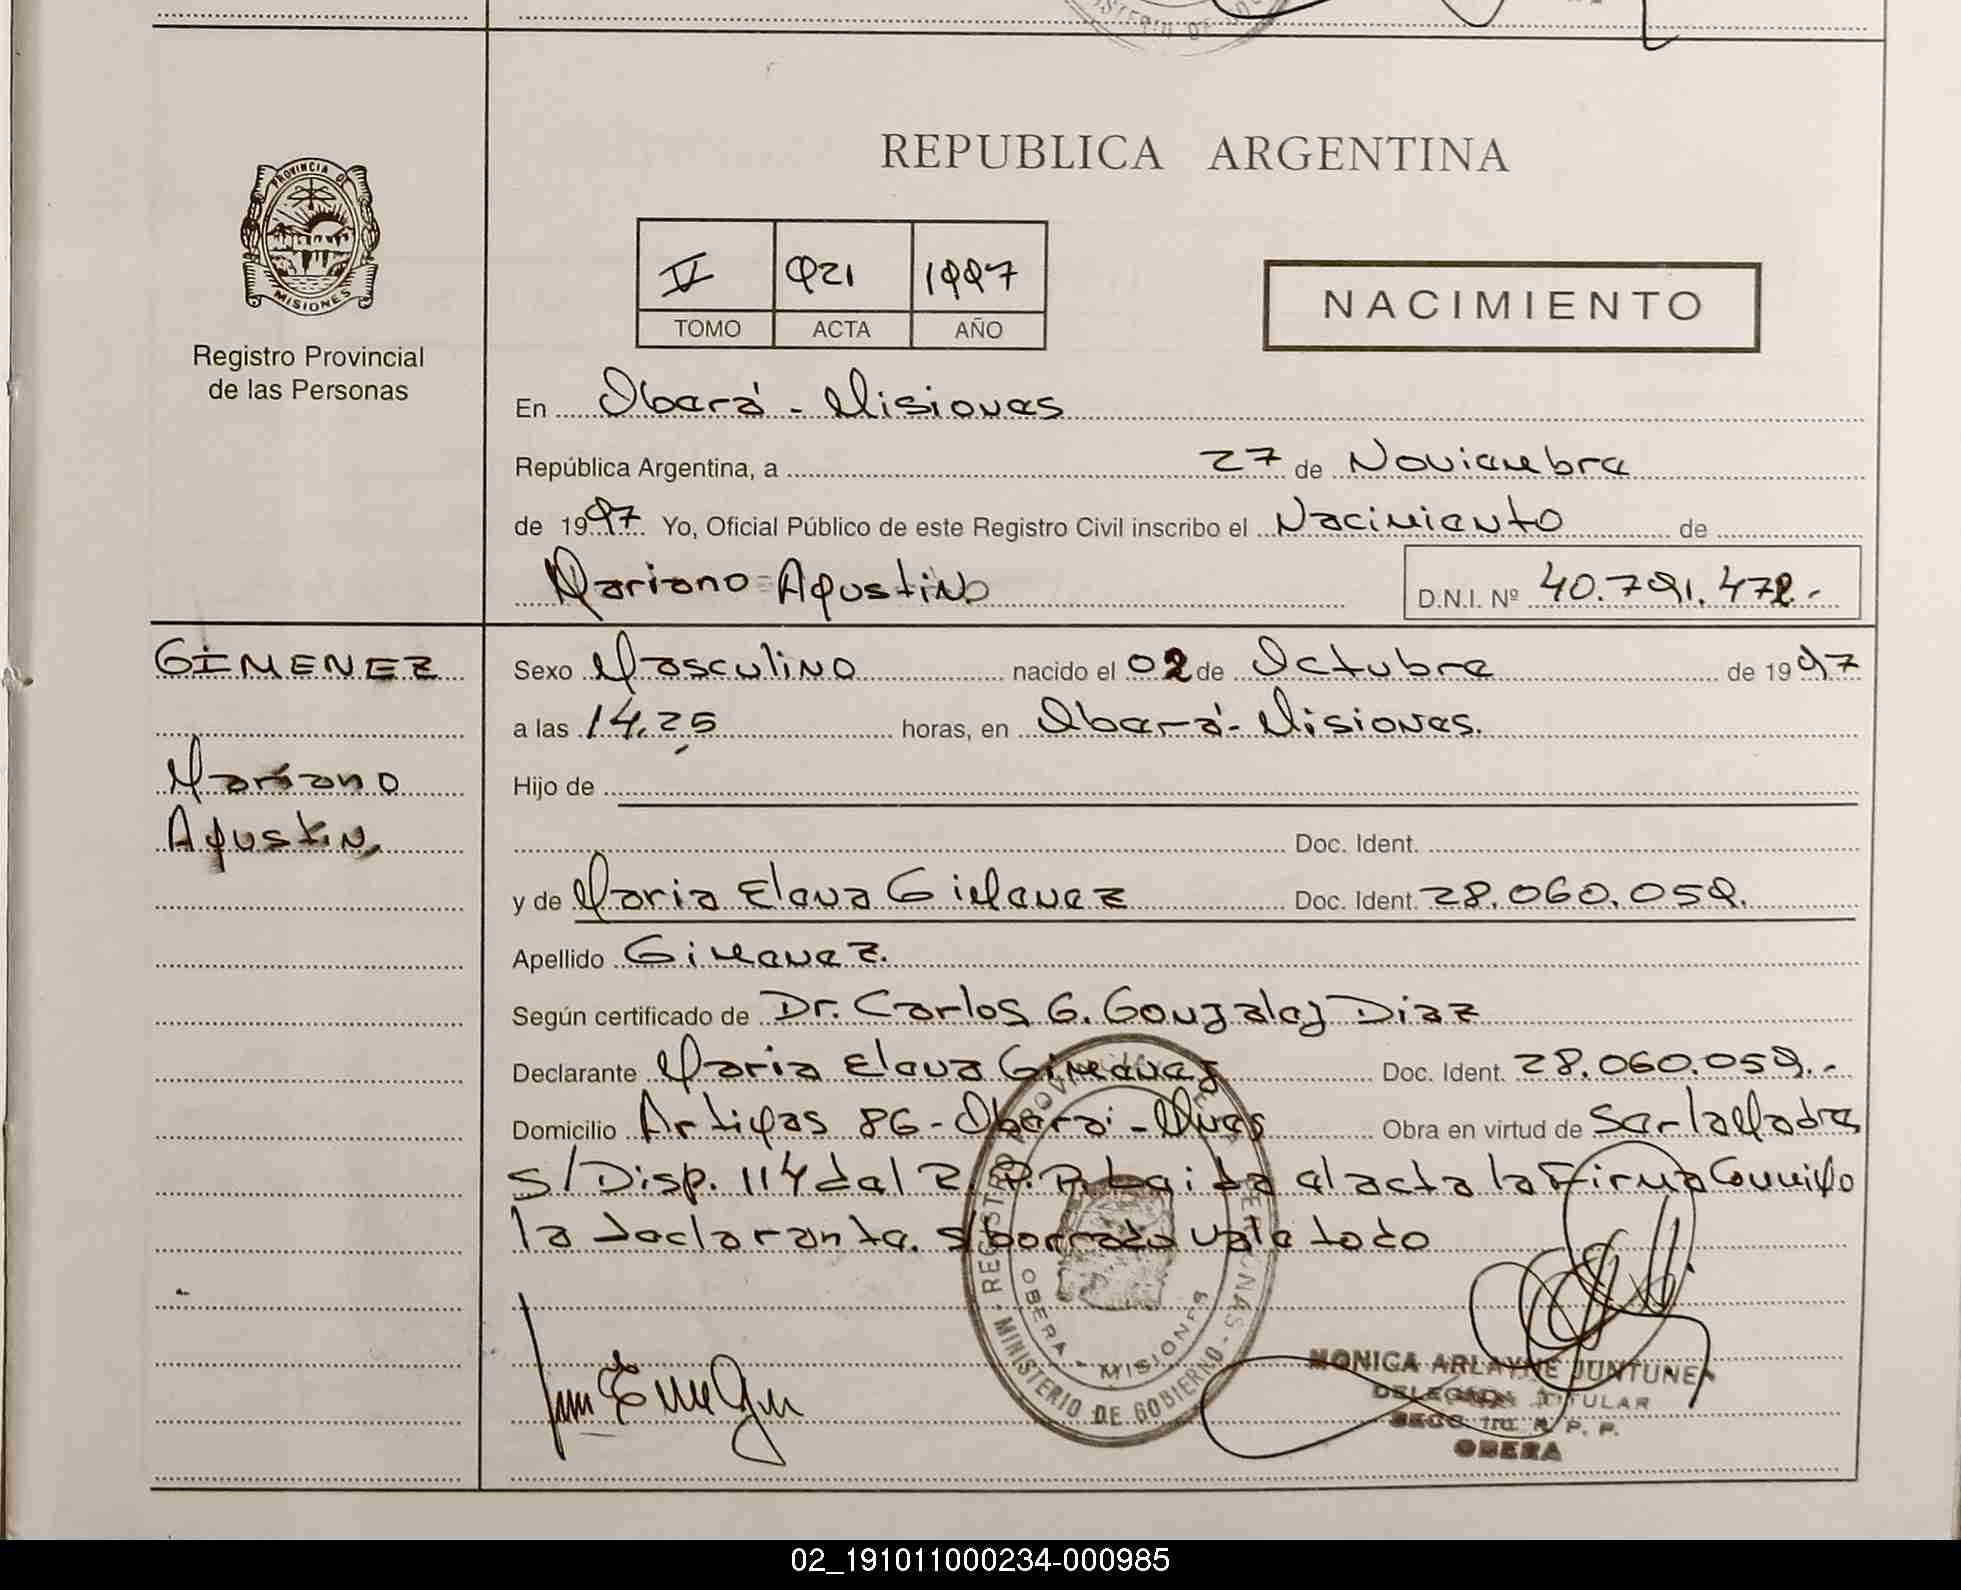 REPUBLICA ARGENTINA
PROVINCIA DE
MISIONES
Registro Provincial
de las Personas
V 921 1997
TOMO ACTA AÑO
NACIMIENTO
En Oberá - Misiones
República Argentina, a 27 de Noviembre
de 1997 Yo, Oficial Público de este Registro Civil inscribo el Nacimiento de
Mariano Agustin D.N.I. Nº 40.791.472.-
GIMENEZ
Mariano
Agustin
Sexo Masculino nacido el 02 de Octubre de 1997
a las 14.25 horas, en Oberá - Misiones.
Hijo de
Doc. Ident.
y de Maria Elena Gimenez Doc. Ident. 28.060.059.
Apellido Gimenez.
Según certificado de Dr. Carlos G. Gonzalez Diaz
Declarante Maria Elena Gimenez Doc. Ident. 28.060.059.-
Domicilio Artigas 86 - Oberá - Mnes Obra en virtud de Ser la Madre
s/Disp. 114 del R.P.P. Leida el acta la Firma Conmigo
la declarante. s/borrado vale todo
REGISTRO PROVINCIAL DE LAS PERSONAS - MINISTERIO DE GOBIERNO -
OBERA - MISIONES
MONICA ARLAYNE JUNTUNEN
DELEGADA TITULAR
SECC. 1ra. R. P. P.
OBERA
02_191011000234-000985